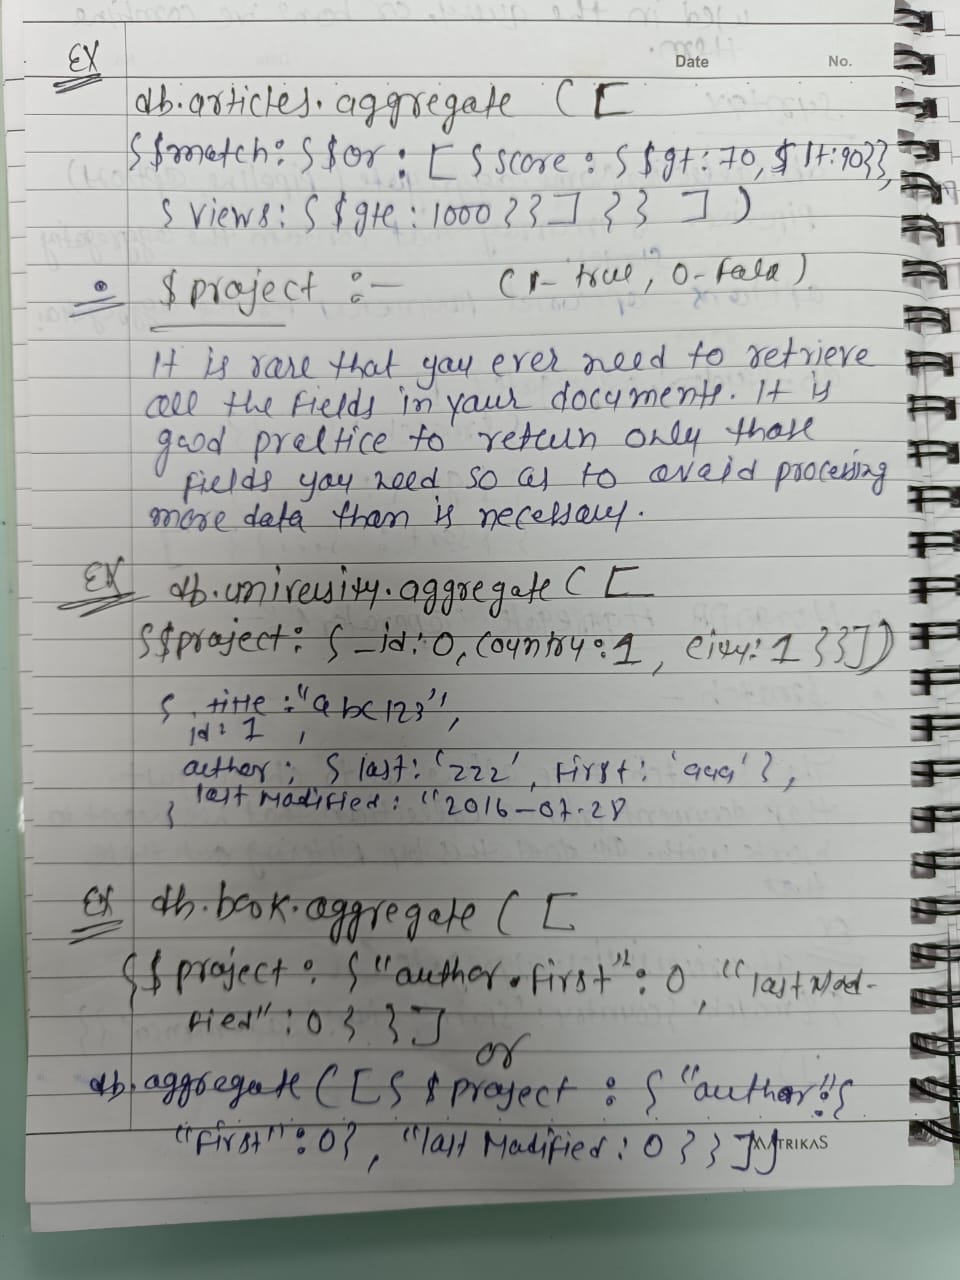 Date No.
EX
db.articles.aggregate ( [
{ $match: { $or : [ { score : { $gt : 70, $ lt : 90 } },
{ views : { $gte : 1000 } } ] } } ] )
$ project :— ( 1- true, 0- false )
It is rare that you ever need to retrieve
all the fields in your documents. It is
good practice to return only those
fields you need so as to avoid processing
more data than is necessary.
EX db.university.aggregate ( [
{ $project : { _id : 0, country : 1, city : 1 } } ] )
{ title : "abc123",
id : 1 ,
author : { last : 'zzz' , first : 'aaa' } ,
last Modified : "2016-07-28
}
EX db.book.aggregate ( [
{ $ project : { "author.first" : 0, "last Mod-
fied" : 0 } } ]
or
db.aggregate ( [ { $ project : { "author" : {
"first" : 0 } , "last Modified : 0 } } ] )
MATRIKAS